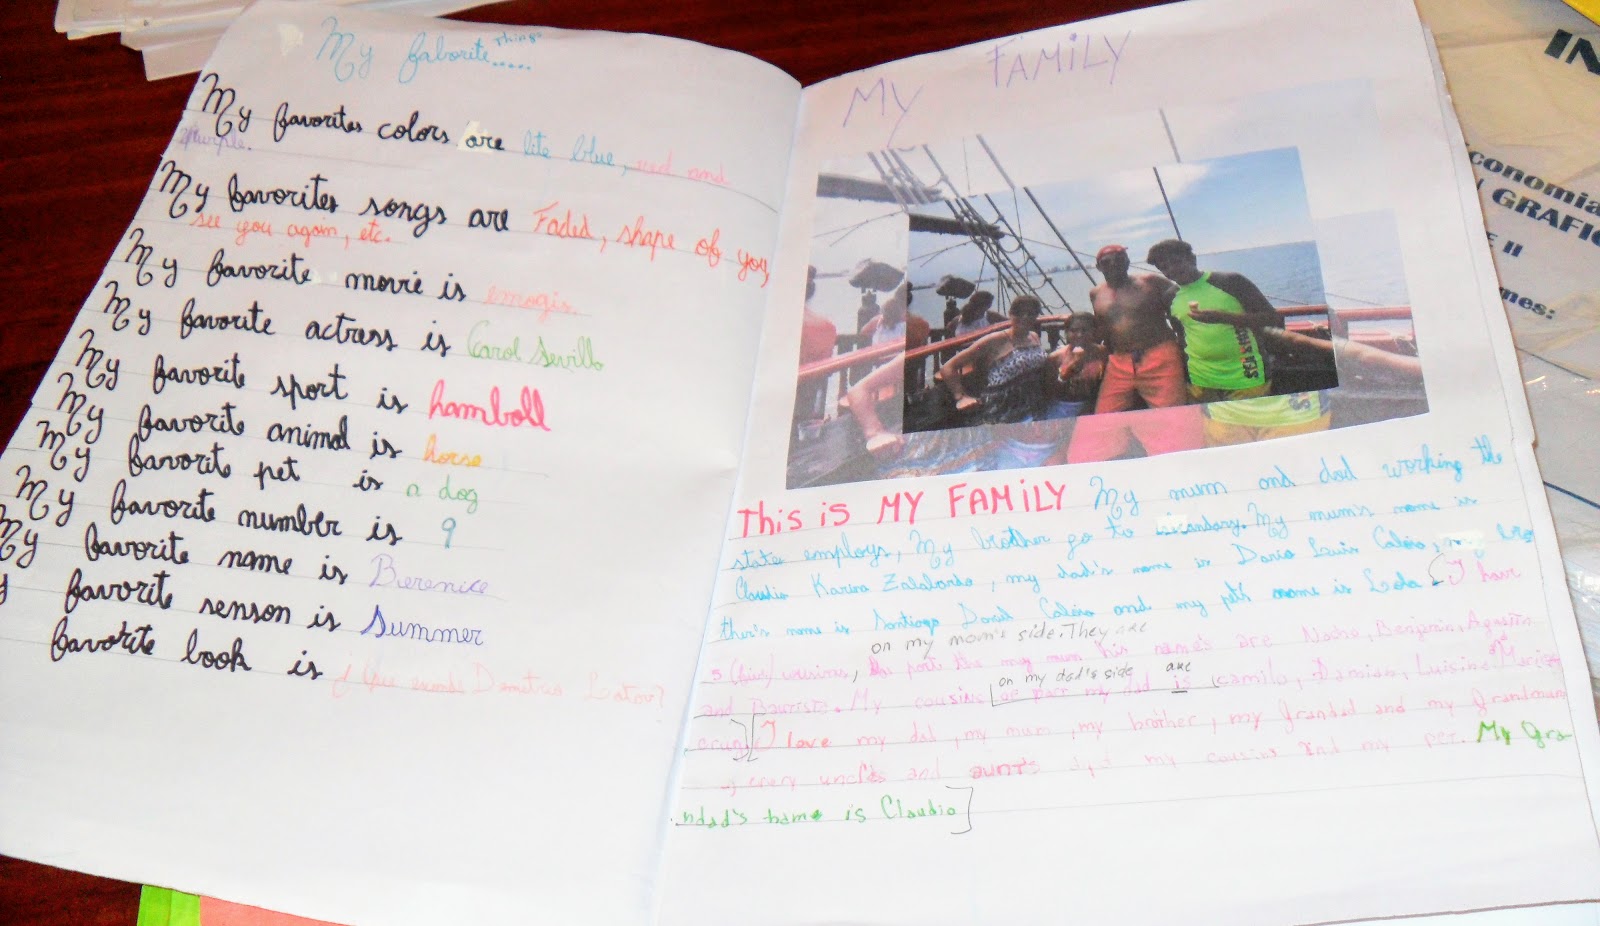 My faborite Things.....
My favorites colors are lite blue, red and
purple.
My favorites songs are Faded, shape of you,
see you again, etc.
My favorite movie is emogis.
My favorite actress is Carol Sevilla
My favorite sport is hamboll
My favorite animal is horse
My favorite pet is a dog
My favorite number is 9
My favorite name is Berenice
favorite senson is Summer
favorite book is ¿Que es de Demetrio Latov?
MY FAMILY
This is MY FAMiLY My mum and dad working the
state employs, My brother go to sicandary. My mum's name is
Claudia Karina , my dad's name is Dario Luis , my bro
ther's name is Santiago and my pet's name is Lola. I have
on my mom's side. They are
5 (five) cousins, the part the my mum his name's are Benjamin, Agustin
on my dad's side are
and Bautista. My cousins of part my dad is Camila, Damian,
I love my dad, my mum, my brother, my grandad and my grandmum
uncle's and aunt's my cousins and my pet. My gra
ndad's name is Claudio
IN
conomia
GRAFIC
E II
nes: